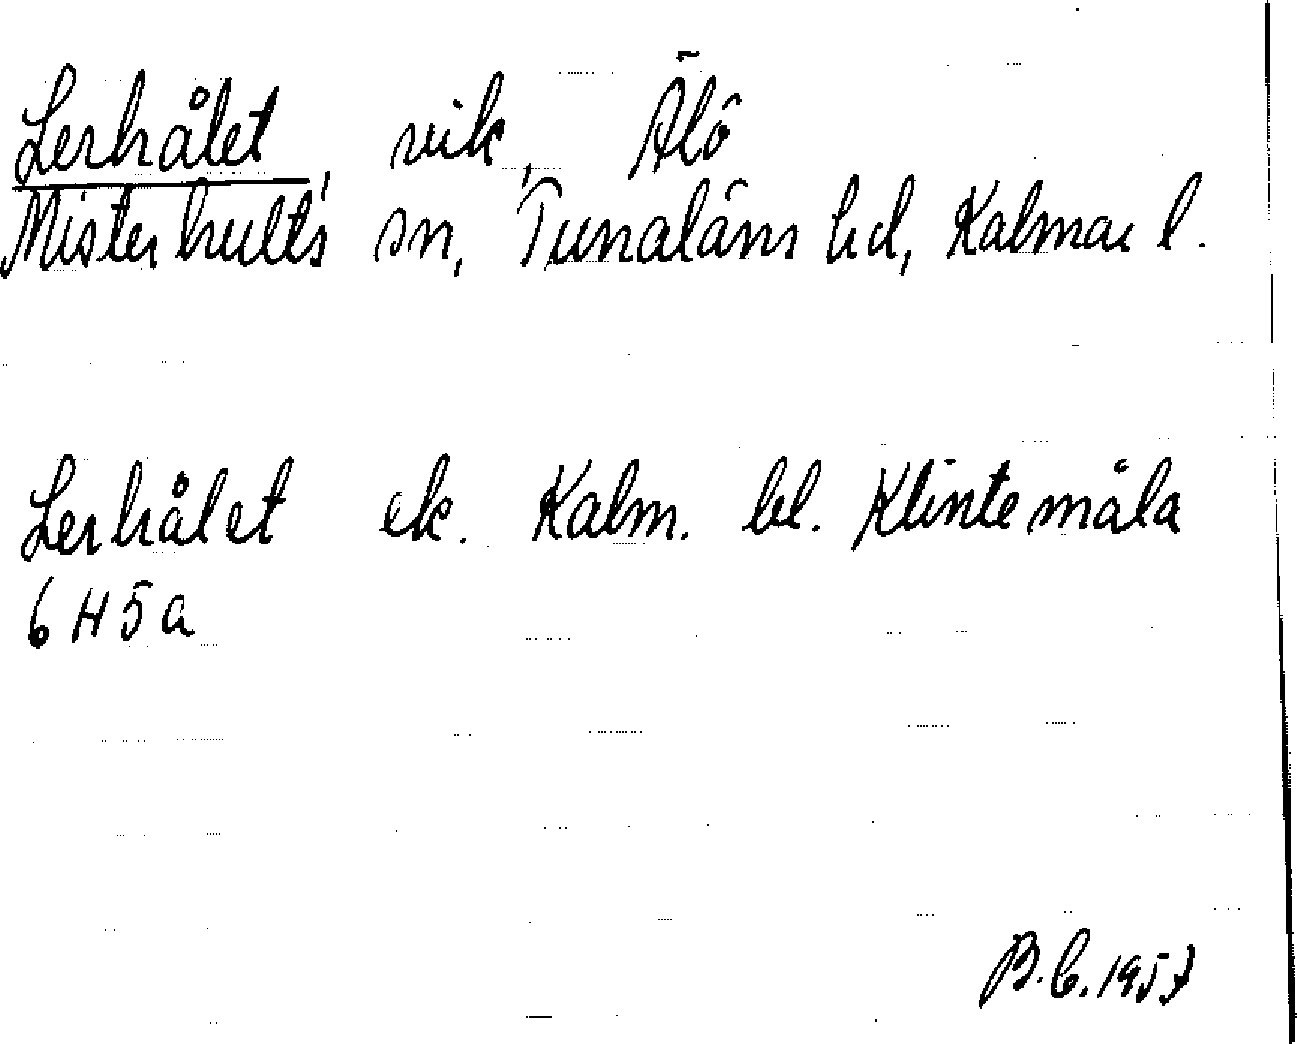 Lerhålet vik, Älö
Misterhults sn, Tunaläns hd, Kalmar l.
Lerhålet ek. Kalm. bl. Klintemåla
6H5a
B.C. 1957